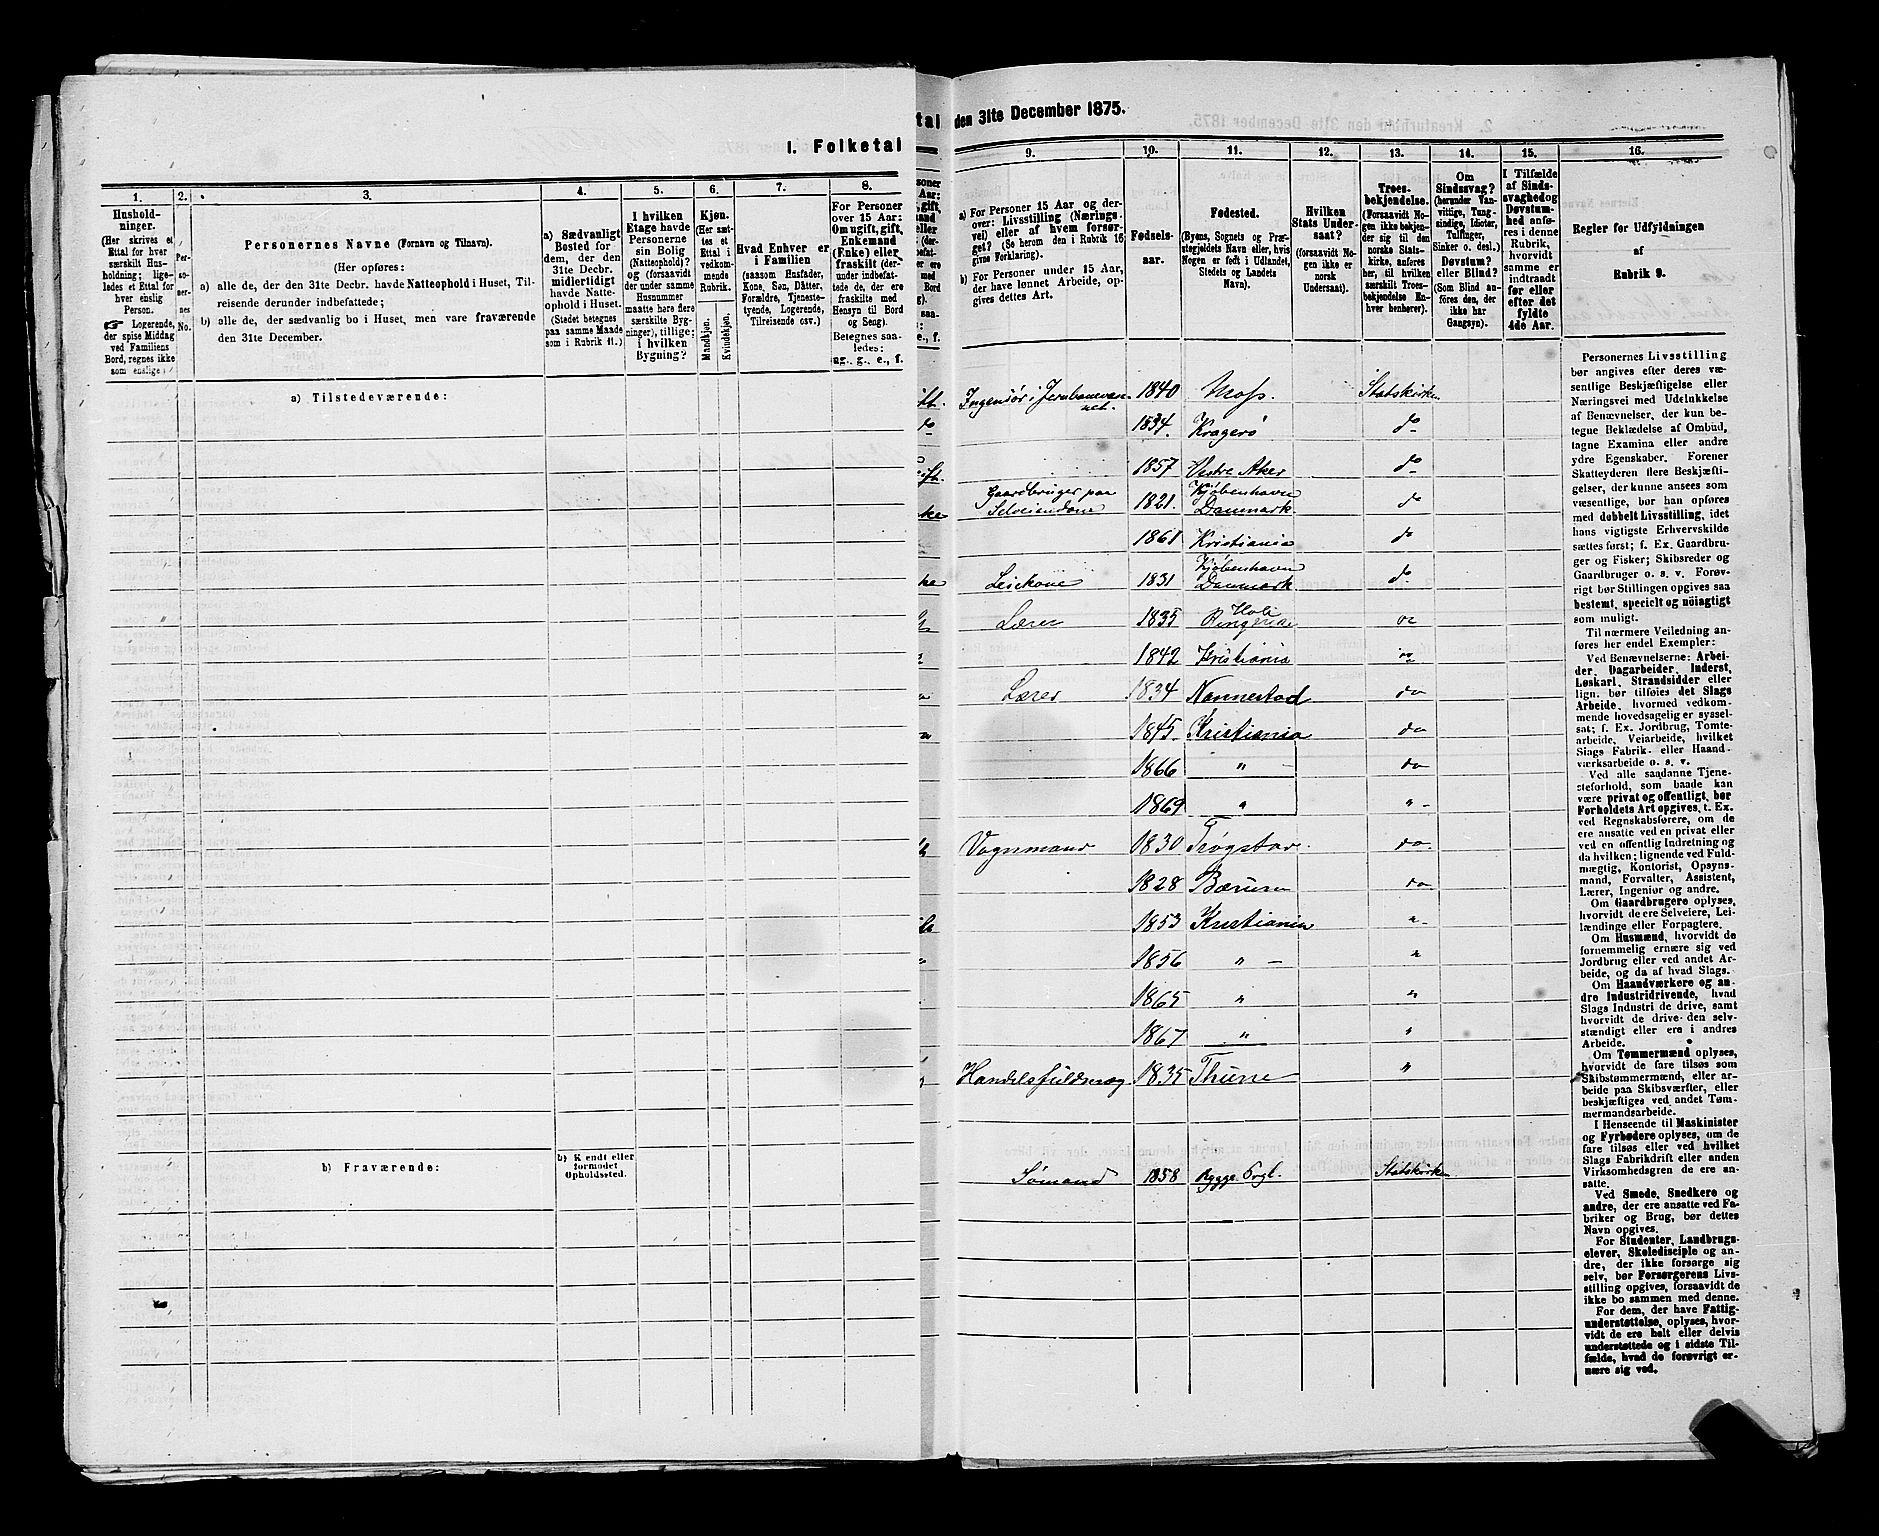 I. Folketal
tal den 31te December 1875.
1. 2. 3. 4. 5. 6. 7. 8.
Husholdninger.
(Her skrives et
Ettal for hver
særskilt Husholdning;
ligeledes et Ettal for
hver enslig
Person.
☞ Logerende,
der spise Middag
ved Familiens
Bord, regnes ikke
som enslige.)
Personernes No.
Personernes Navne (Fornavn og Tilnavn).
(Her opføres:
a) alle de, der den 31te Decbr. havde Natteophold i Huset, Tilreisende derunder indbefattede;
b) alle de, der sædvanlig bo i Huset, men vare fraværende
den 31te December.
a) Sædvanligt
Bosted for
dem, der den
31te Decbr.
midlertidigt
havde Natteophold i Huset.
(Stedet betegnes
paa samme Maade
som i Rubrik 11.)
I hvilken
Etage havde
Personerne
sin Bolig
(Natteophold)?
og (forsaavidt
der under samme
Husnummer
maatte høre flere
særskilte Bygninger), tillige:
i hvilken
Bygning?
Kjøn.
(Her sættes et
Ettal i
vedkommende
Rubrik.
Mandkjøn.
Kvindekjøn.
Hvad Enhver er
i Familien
(saasom Husfader,
Kone, Søn, Datter,
Forældre, Tjenestetyende, Logerende,
Tilreisende osv.)
For Personer
over 15 Aar:
Om ugift, gift,
Enkemand
(Enke) eller
fraskilt (derunder indbefattede de, der ere
fraskilte med
Hensyn til Bord
og Seng).
Betegnes saaledes:
ug., g., e., f.
a) Tilstedeværende:
b) Fraværende:
b) Kjendt eller
formodet
Opholdssted.
9. 10. 11. 12. 13. 14. 15. 16.
a) For Personer 15 Aar og derover: Livsstilling (Næringsvei) eller af hvem forsørget? (Se herom den i Rubrik 16
givne Forklaring).
b) For Personer under 15 Aar,
der have lønnet Arbeide, opgives dettes Art.
Fødselsaar.
Fødested.
(Byens, Sognets og Præstegjeldets Navn eller, hvis
Nogen er født i Udlandet,
Stedets og Landets
Navn).
Hvilken
Stats Undersaat?
(forsaavidt
Nogen ikke er
norsk
Undersaat).
Troesbekjendelse.
(Forsaavidt Nogen ikke bekjender sig til den
norske Statskirke, anføres
her, til hvilken
særskilt Troesbekjendelse Enhver henhører).
Om
Sindssvag?
(herunder Vanvittige, Tungsindige, Idioter,
Tullinger,
Sinker o. desl.)
Døvstum?
eller Blind?
(Som Blind anføres den, der
ikke har
Gangsyn).
I Tilfælde
af Sindssvaghed og
Døvstumhed anføres i denne
Rubrik,
hvorvidt
samme er
indtraadt
før eller
efter det
fyldte
4de Aar.
Regler for Udfyldningen
af
Rubrik 9.
Ingeniør i Jernbanevæsnet. 1840 Moss. Statskirken
do 1834. Kragerø do
1857 Vestre Aker do
Gaardbruger paa Selveiendom 1821. Kjøbenhavn Danmark do
1861 Kristiania do
Leiekone 1831 Kjøbenhavn Danmark do
Lærer 1835 Hole Ringerike do
1842 Kristiania do
Lærer 1834 Nannestad do
1845. Kristiania do
1866 " do
1869 " "
Vognmand 1830 Trøgstad do
1828 Bærum do
1853 Kristiania "
1856 " "
1865 " "
1867 " "
Handelsfuldmæg. 1835 Thune "
Sømand 1858 Rygge Prgl. Statskirken
Personernes Livsstilling
bør angives efter deres væsentlige Beskjæftigelse eller
Næringsvei med Udelukkelse
af Benævnelser, der kun betegne Beklædelse af Ombud,
tagne Examina eller andre
ydre Egenskaber. Forener
Skatteyderen flere Beskjæftigelser, der kunne ansees som
væsentlige, bør han opføres
med dobbelt Livsstilling, idet
hans vigtigste Erhvervskilde
sættes først; f. Ex. Gaardbruger og Fisker; Skibsreder og
Gaardbruger o. s. v. Forøvrigt bør Stillingen opgives saa
bestemt, specielt og nöiagtigt
som muligt.
Til nærmere Veiledning anføres her endel Exempler:
Ved Benævnelserne: Arbeider, Dagarbeider, Inderst,
Løskarl, Strandsidder eller
lign. bør tilføies det Slags
Arbeide, hvormed vedkommende hovedsagelig er sysselsat; f. Ex. Jordbrug, Tomtearbeide, Veiarbeide, hvilket
Slags Fabrik- eller Haandværksarbeide o. s. v.
Ved alle saadanne Tjenesteforhold, som baade kan
være privat og offentligt, bør
Forholdets Art opgives, t. Ex.
ved Regnskabsførere, om de
ere ansatte ved en privat eller
ved en offentlig Indretning og
da hvilken; lignende ved Fuldmægtig, Kontorist, Opsynsmand, Forvalter, Assistent,
Lærer, Ingeniør og andre.
Om Gaardbrugere oplyses,
hvorvidt de ere Selveiere, Leilændinge eller Forpagtere.
Om Husmænd, hvorvidt de
fornemmelig ernære sig ved
Jordbrug eller ved andet Arbeide, og da af hvad Slags.
Om Haandværkere og andre Industridrivende, hvad
Slags Industri de drive, samt
hvorvidt de drive den selvstændigt eller ere i andres
Arbeide.
Om Tømmermænd oplyses,
hvorvidt de fare tilsøs som
Skibstømmermænd, eller arbeide paa Skibsværfter, eller
beskjæftiges ved andet Tømmermandsarbeide.
I Henseende til Maskinister
og Fyrbødere oplyses, om de
fare tilsøs eller ved hvilket
Slags Fabrikdrift eller anden
Virksomhedsgren de ere ansatte.
Ved Smede, Snedkere og
andre, der ere ansatte ved Fabriker og Brug, bør dettes
Navn opgives.
For Studenter, Landbrugselever, Skoledisciple og andre, der ikke forsørge sig
selv, bør Forsørgerens Livsstilling opgives, forsaavidt de
ikke bo sammen med denne.
For dem, der have Fattigunderstøttelse, oplyses, hvorvidt de ere helt eller delvis
understøttede og i sidste Tilfælde, hvad de forøvrigt ernære sig ved.